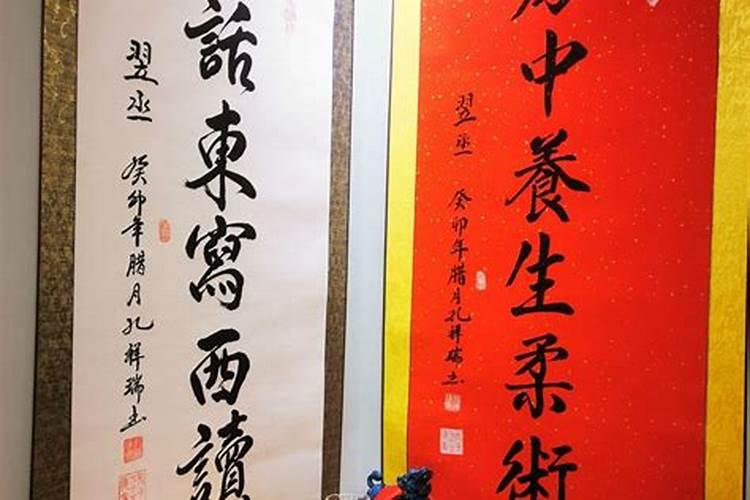 中養生柔術
翌丞 癸卯年腊月孔祥瑞书
話東寫西讀
翌丞 癸卯年腊月孔祥瑞书